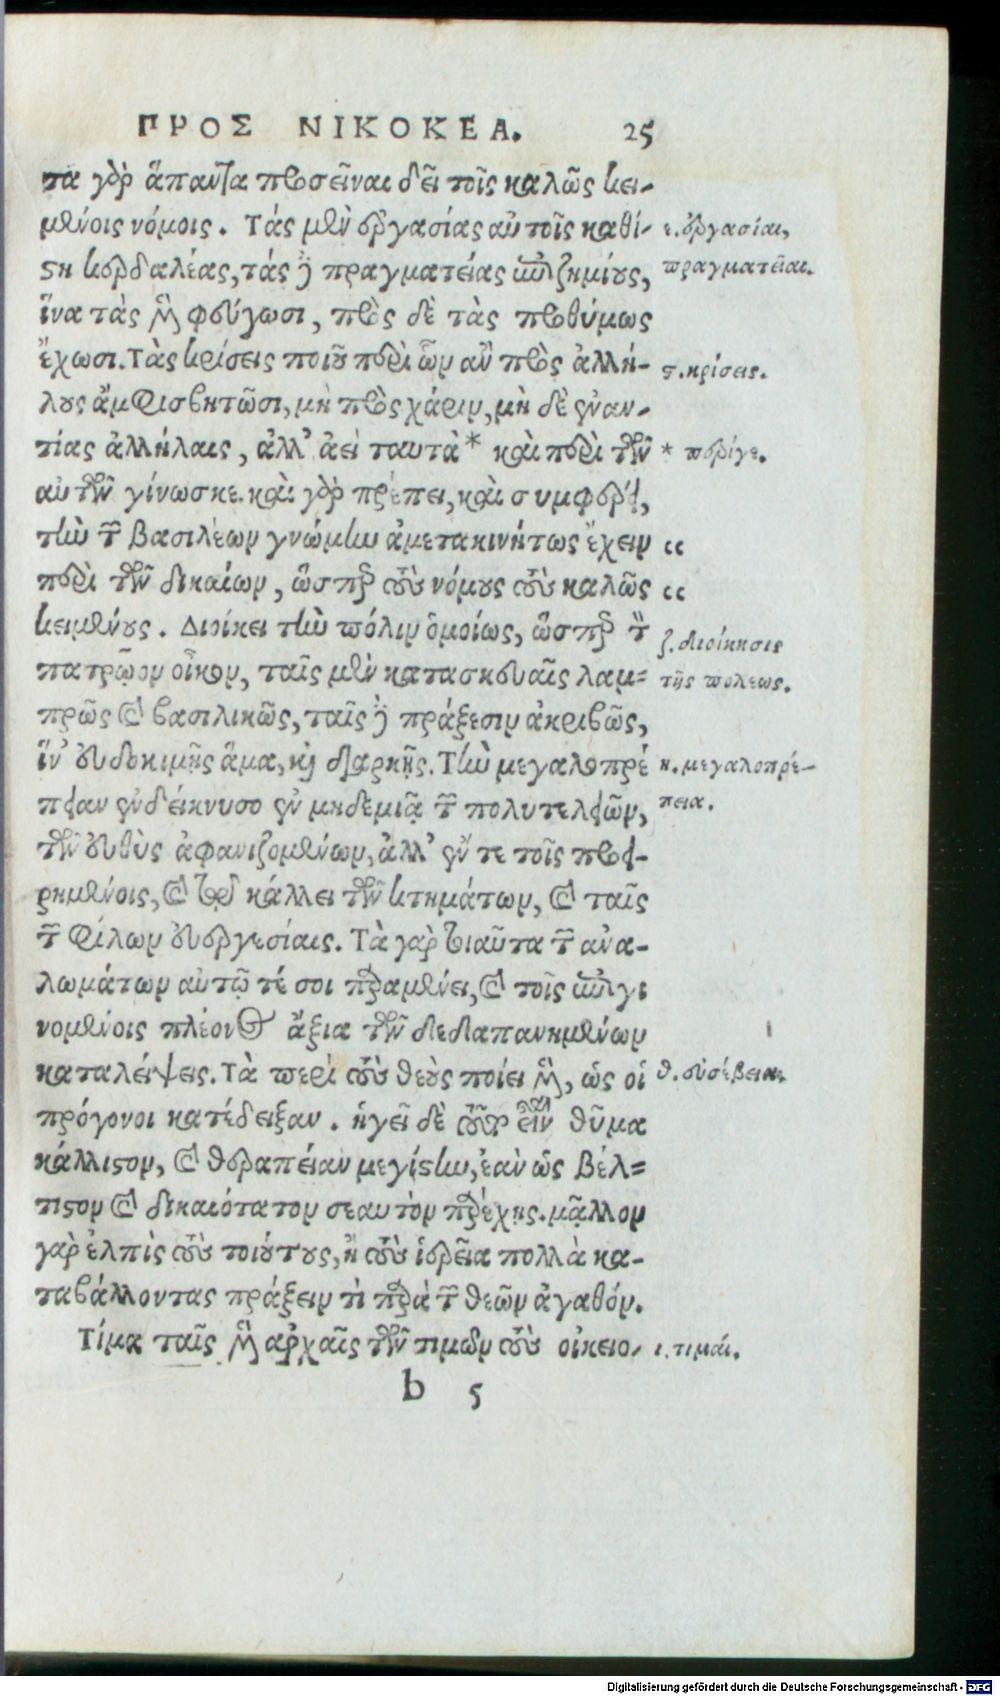 ΠΡΟΣ ΝΙΚΟΚΕΑ. 25
τα γὰρ ἅπαντα προσεῖναι δεῖ τοῖς καλῶς κει-
μένοις νόμοις. Τάς μὲν ἐργασίας αὐτοῖς καθί- ε. ἐργασίαι,
ςη κερδαλέας, τάς δὲ πραγματείας ἐπιζημίους, πραγματεῖαι.
ἵνα τὰς μὲν φεύγωσι, πρὸς δὲ τὰς προθύμως
ἔχωσι. Τὰς κρίσεις ποιοῦ περὶ ὧν ἂν πρὸς ἀλλή- ϛ. κρίσεις.
λους ἀμφισβητῶσι, μὴ πρὸς χάριν, μὴ δὲ ἐναν-
τίας ἀλλήλαις, ἀλλ' ἀεὶ ταυτὰ* καὶ περὶ τῶν * περίγε.
αὐτῶν γίνωσκε. καὶ γὰρ πρέπει, καὶ συμφέρει,
τὴν τῶν βασιλέων γνώμην ἀμετακινήτως ἔχειν “
περὶ τῶν δικαίων, ὥσπερ τοὺς νόμους τοὺς καλῶς “
κειμένους. Διοίκει τὴν πόλιν ὁμοίως, ὥσπερ τὸν ζ. διοίκησις
πατρῷον οἶκον, ταῖς μὲν κατασκευαῖς λαμ- τῆς πολεως.
πρῶς καὶ βασιλικῶς, ταῖς δὲ πράξεσιν ἀκριβῶς,
ἵν' εὐδοκιμῇς ἅμα, καὶ διαρκῇς. Τὴν μεγαλοπρέ η. μεγαλοπρέ-
πειαν ἐνδείκνυσο ἐν μηδεμιᾷ τῶν πολυτελειῶν, πεια.
τῶν εὐθὺς ἀφανιζομένων, ἀλλ' ἔν τε τοῖς προει-
ρημένοις, καὶ τῷ κάλλει τῶν κτημάτων, καὶ ταῖς
τῶν φίλων εὐεργεσίαις. Τὰ γὰρ τοιαῦτα τῶν ἀνα-
λωμάτων αὐτῷ τέ σοι παραμένει, καὶ τοῖς ἐπιγι
νομένοις πλέονος ἄξια τῶν δεδαπανημένων
καταλείψεις. Τὰ περὶ τοὺς θεοὺς ποίει μὲν, ὡς οἱ θ. εὐσέβεια.
πρόγονοι κατέδειξαν. ἡγεῖ δὲ τοῦτο εἶναι θῦμα
κάλλιςον, καὶ θεραπείαν μεγίςην, ἐὰν ὡς βέλ-
τιςον καὶ δικαιότατον σεαυτὸν παρέχῃς. μᾶλλον
γὰρ ἐλπὶς τοὺς τοιούτους, ἢ τοὺς ἱερεῖα πολλὰ κα-
ταβάλλοντας πράξειν τὶ παρὰ τῶν θεῶν ἀγαθόν.
Τίμα ταῖς μὲν ἀρχαῖς τῶν τιμῶν τοὺς οἰκειο- ι. τιμαί.
b 5
Digitalisierung gefördert durch die Deutsche Forschungsgemeinschaft - DFG